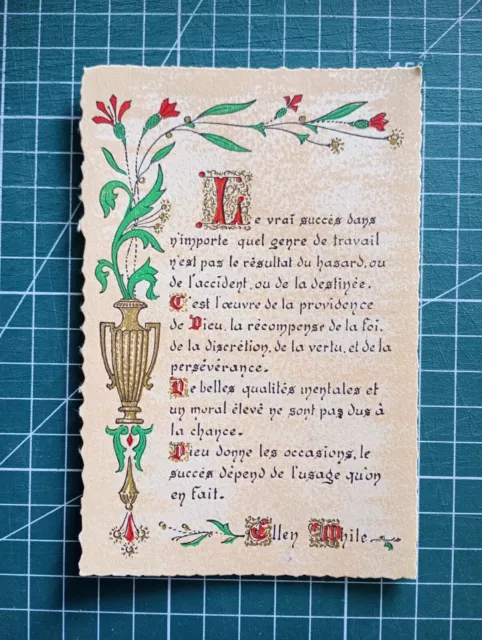 Le vrai succès dans
n'importe quel genre de travail
n'est pas le résultat du hasard, ou
de l'accident, ou de la destinée.
C'est l'œuvre de la providence
de Dieu, la récompense de la foi,
de la discrétion, de la vertu, et de la
persévérance.
De belles qualités mentales et
un moral élevé ne sont pas dus à
la chance.
Dieu donne les occasions, le
succès dépend de l'usage qu'on
en fait.
Ellen White